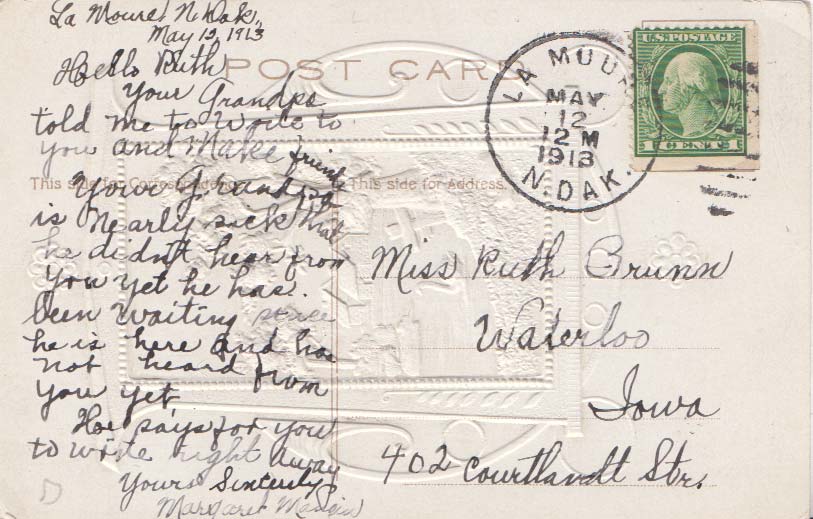 La Moure, N. Dak.,
May 12, 1913
Hello Ruth
Your Grandpa
told me to write to
you and make friends
Your Grandpa
is nearly sick that
he didn't hear from
you yet he has.
been waiting
he is here and has
not heard from
you yet
He says for you
to write right away
Yours Sincerely
Margaret
POST CARD
This side for Correspondence
This side for Address.
LA MOURE
MAY
12
12 M
1913
N. DAK.
U.S. POSTAGE
1 CENT 1
Miss Ruth Brunn
Waterloo
Iowa
402 Courtlandt Str.